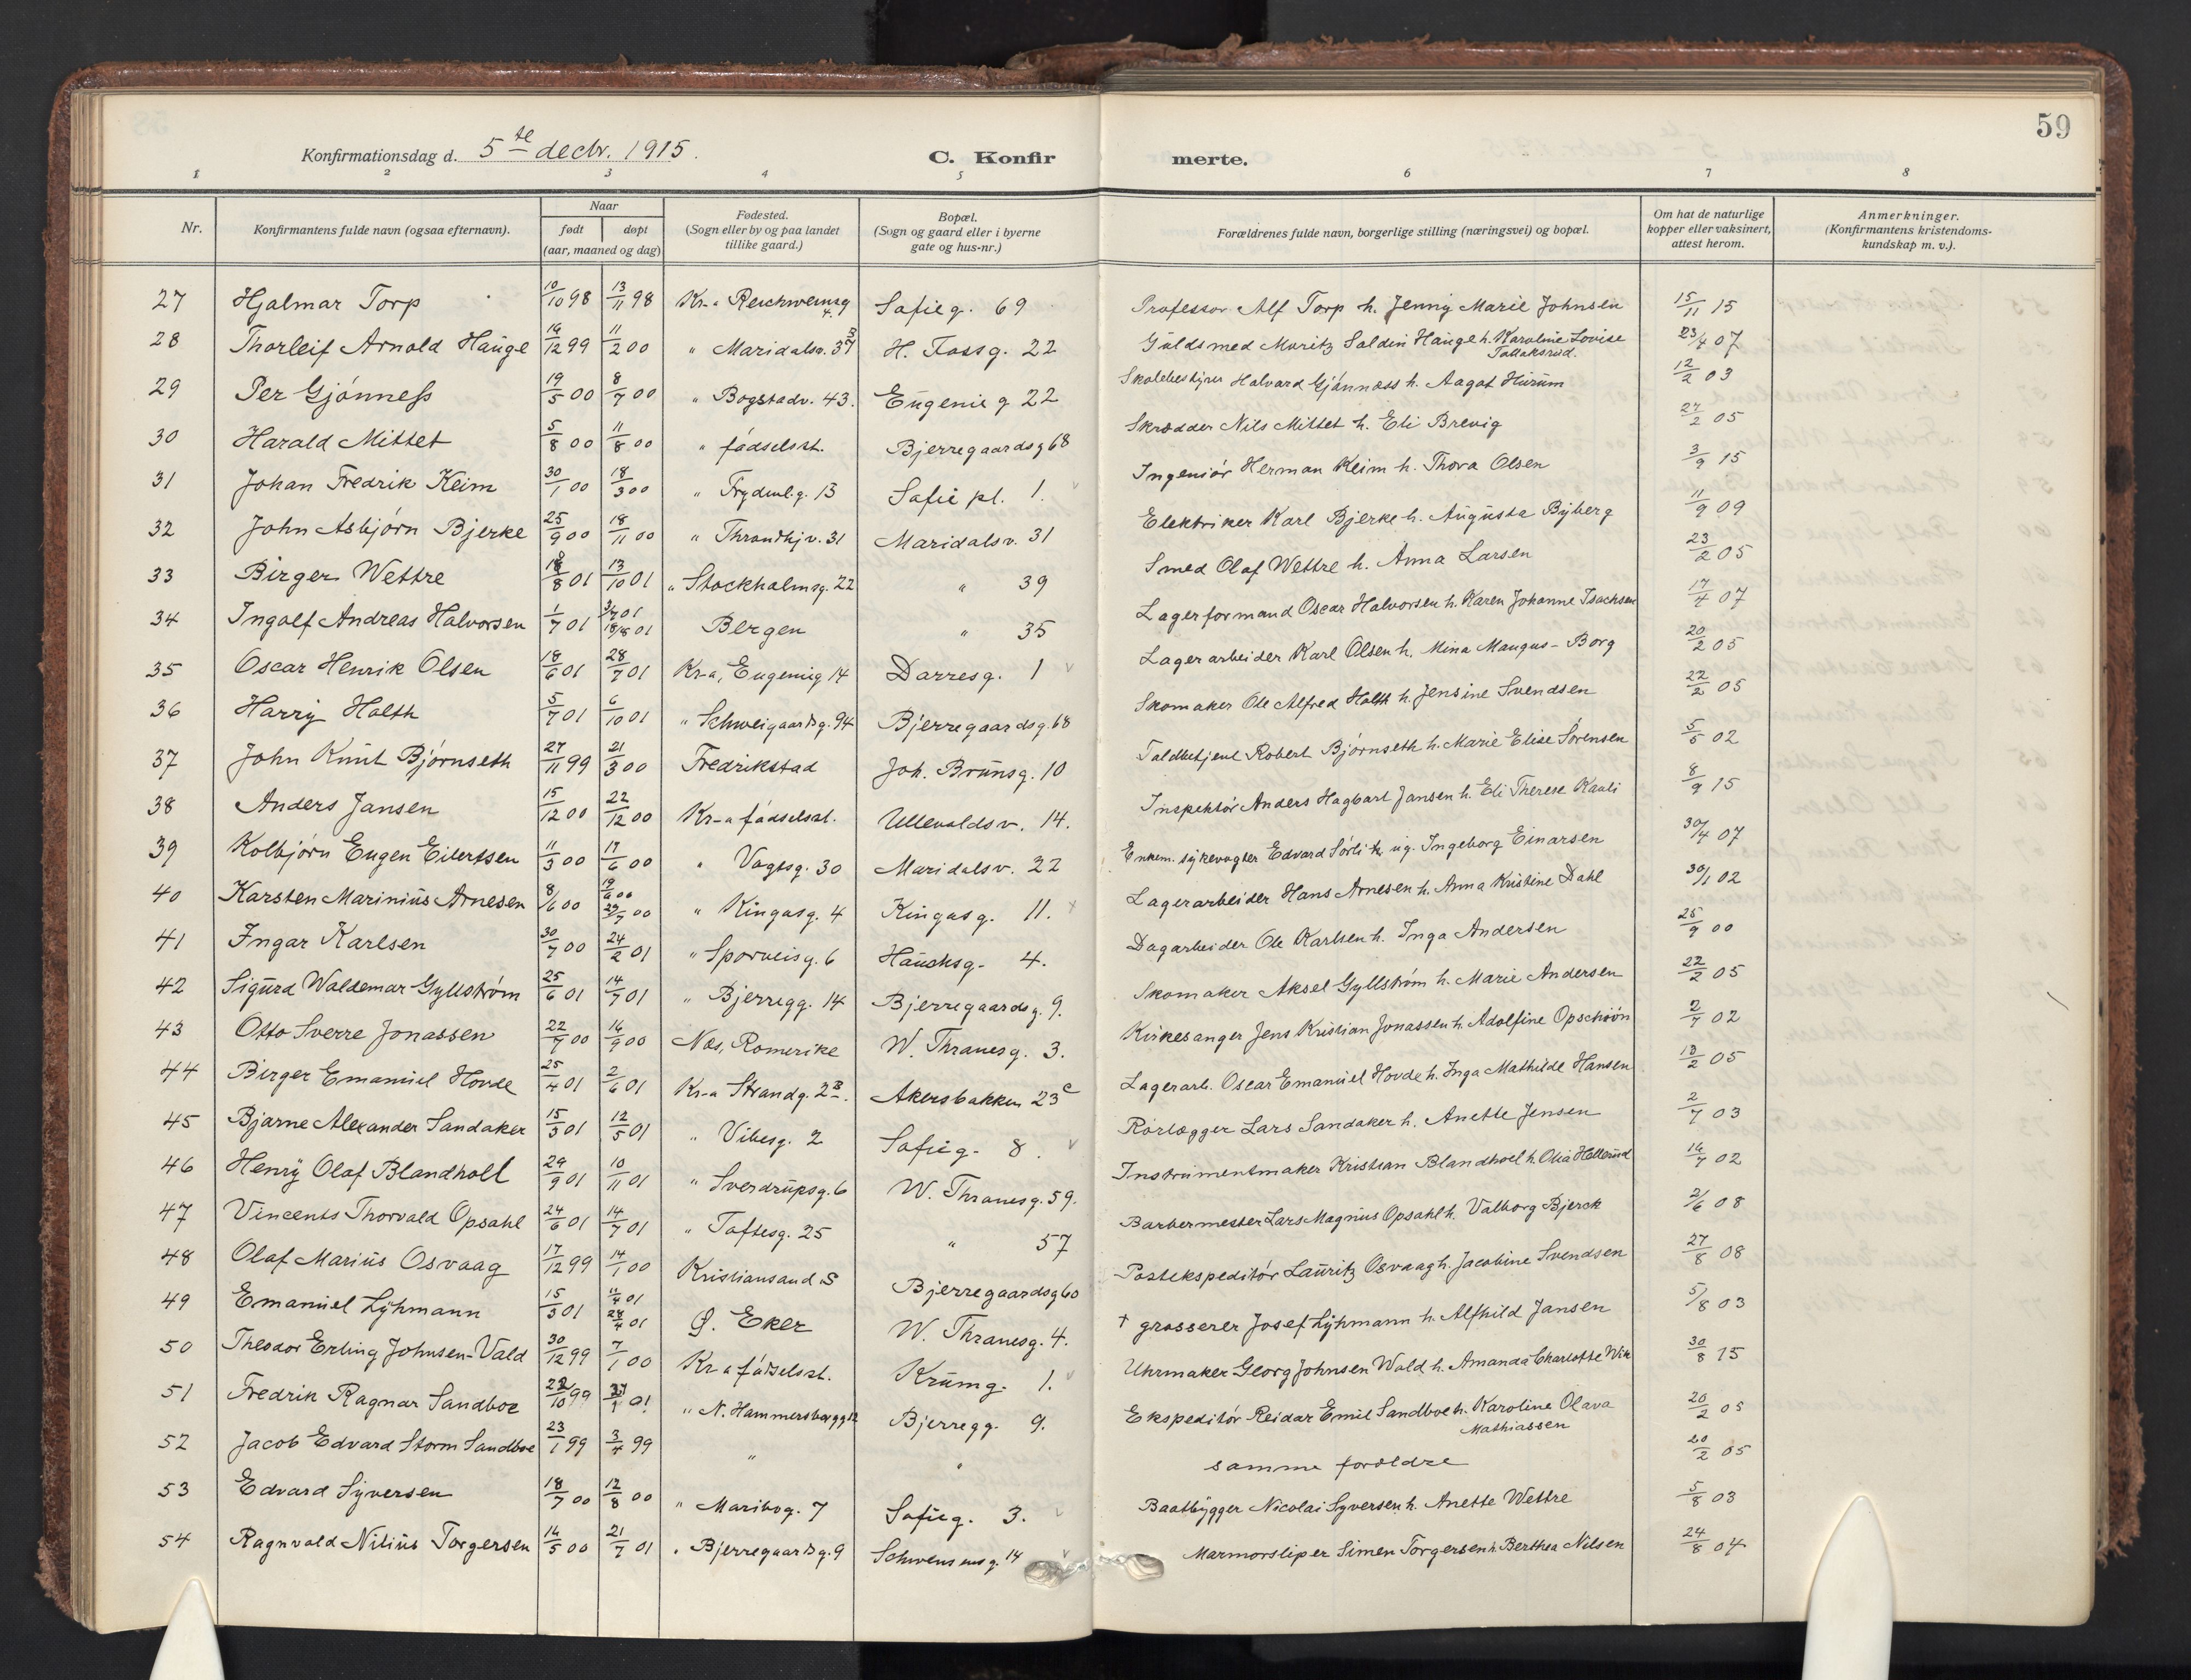 59
Konfirmationsdag d. 5te decbr. 1915.
C. Konfir merte.
1 2 3 4 5 6 7 8
Nr. Konfirmantens fulde navn (ogsaa efternavn). Naar født døpt (aar, maaned og dag) Fødested. (Sogn eller by og paa landet tillike gaard.) Bopæl. (Sogn og gaard eller i byerne gate og hus-nr.) Forældrenes fulde navn, borgerlige stilling (næringsvei) og bopæl. Om hat de naturlige kopper eller vaksinert, attest herom. Anmerkninger. (Konfirmantens kristendomskundskap m. v.).
27 Hjalmar Torp 10/10 98 13/11 98 Kr-a Sofieg. 69 Professor Alf Torp h. Jenny Marie Johnsen 15/11 15
28 Thorleif Arnold Hauge 12 99 11/2 00 " Maridalsv. H. Fossg. 22 Guldsmed Moritz Hauge h. Karoline Lovise 23/4 07
29 Per Gjönness 19/5 00 8/7 00 " Bogstadv. 43. Eugenieg 22 Skolebestyrer Halvard Gjönness h. Aagot Hurum 12/2 03
30 Harald Mittet 5/8 00 11/8 00 " fødselsst. Bjerregaardsg 68 Skrædder Nils Mittet h. Eli Brevig 2 05
31 Johan Fredrik Keim 30/1 00 18/3 00 " Frydenl.g. 13 Sofie pl. 1. Ingeniör Herman Keim h. Thora Olsen 3/9 15
32 John Asbjörn Bjerke 25/9 00 18/11 00 " Throndhjv. 31 Maridalsv. 31 Elektriker Karl Bjerke h. Augusta Byberg 11/9 09
33 Birger Wettre 8 01 13/10 01 " Stockholmsg. 22 " 39 Smed Olaf Wettre h. Anna Larsen 23/2 05
34 Ingolf Andreas Halvorsen 1/7 01 3/7 01 18/8 01 Bergen " 35 Lagerformand Oscar Halvorsen h. Karen Johanne Isachsen 17/4 07
35 Oscar Henrik Olsen 18/6 01 28/7 01 Kr-a, Eugenieg 14 Darresg. 1 Lagerarbeider Karl Olsen h. Mina Mangus-Borg 20/2 05
36 Harry Holth 5/7 01 6/10 01 " Schweigaardsg. 94 Bjerregaardsg. 68 Skomaker Ole Alfred Holth h. Jensine Svendsen 22/2 05
37 John Knut Björnseth 27/11 99 21/3 00 Fredrikstad Joh. Brunsg. 10 Toldbetjent Robert Björnseth h. Marie Elise Sörensen 5/5 02
38 Anders Jansen 15/12 00 22/12 00 Kr-a fødselsst. Ullevoldsv. 14. Inspektör Anders Hagbart Jansen h. Eli Therese Kaali 8/9 15
39 Kolbjörn Eugen Eilertsen 11/3 00 17/6 00 " Vogtsg. 30 Maridalsv. 22 Enkem. sykevogter Edvard Sörli ug. Ingeborg Einarsen 30/4 07
40 Karsten Marinius Arnesen 8/6 00 19/6 00 29/7 00 " Kingosg. 4 Kingosg. 11. Lagerarbeider Hans Arnesen h. Anna Kristine Dahl 30/1 02
41 Ingar Karlsen 30/7 00 24/2 01 " Sporveisg. 6 Hauchsg. 4. Dagarbeider Ole Karlsen h. Inga Andersen 25/9 00
42 Sigurd Waldemar Gyllström 25/6 01 14/7 01 " Bjerregg. 14 Bjerregaardsg. 9. Skomaker Aksel Gyllström h. Marie Andersen 22/2 05
43 Otto Sverre Jonassen 22/7 00 16/9 00 Nes, Romerike W. Thranesg. 3. Kirkesanger Jens Kristian Jonassen h. Adolfine Opschöön 2/7 02
44 Birger Emanuel Hovde 25/4 01 2/6 01 Kr-a Strandg. 2B. Akersbakken 23c Lagerarb. Oscar Emanuel Hovde h. Inga Mathilde Hansen 13/2 05
45 Bjarne Alexander Sandaker 15/3 01 12/5 01 " Vibesg. 2 Sofieg. 8. Rørlægger Lars Sandaker h. Anette Jensen 2/7 03
46 Henry Olaf Blandholl 29/9 01 10/11 01 " Sverdrupsg. 6 W. Thranesg. 59. Instrumentmaker Kristian Blandhoel h. Olia Hellerud 16/7 02
47 Vincents Thorvald Opsahl 24/6 01 14/7 01 " Toftesg. 25 " 57 Barbermester Lars Magnus Opsahl h. Valborg Bjerck 2/6 08
48 Olaf Marius Osvaag 17/12 99 14/1 00 Kristiansand S Bjerregaardsg 60 Postekspeditör Lauritz Osvaag h. Jacobine Svendsen 27/8 08
49 Emanuel Lyhmann 15/3 01 11/4 01 28/4 01 Ø. Eker W. Thranesg. 4. † grosserer Josef Lyhmann h. Alfhild Jansen 5/8 03
50 Theodor Erling Johnsen-Vald 30/12 99 7/1 00 Kr-a fødselsst. Krumg. 1. Uhrmaker Georg Johnsen Wald h. Amanda Charlotte Wik 30/8 15
51 Fredrik Ragnar Sandboe 10 99 01 " N. Hammersborgg 12 Bjerregg. 9. Ekspeditör Reidar Emil Sandboe h. Karoline Olava Mathiassen 20/2 05
52 Jacob Edvard Storm Sandboe 23/1 99 3/4 99 " " samme forældre 20/2 05
53 Edvard Syversen 18/7 00 12/8 00 " Maribog. 7 Sofieg. 3. Baatbygger Nicolai Syversen h. Anette Wettre 5/8 03
54 Ragnvald Nilius Torgersen 16/5 00 21/7 01 " Bjerregaardsg. 9 Schwensensg. 14 Marmorsliper Simen Torgersen h. Berthea Nilsen 24/8 04